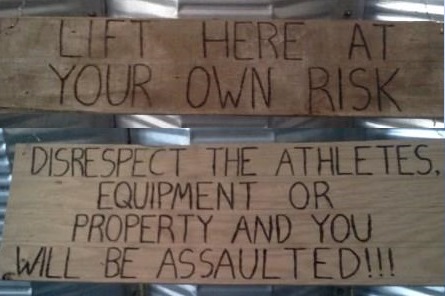 LIFT HERE AT
YOUR OWN RISK
DISRESPECT THE ATHLETES,
EQUIPMENT OR
PROPERTY AND YOU
WILL BE ASSAULTED!!!